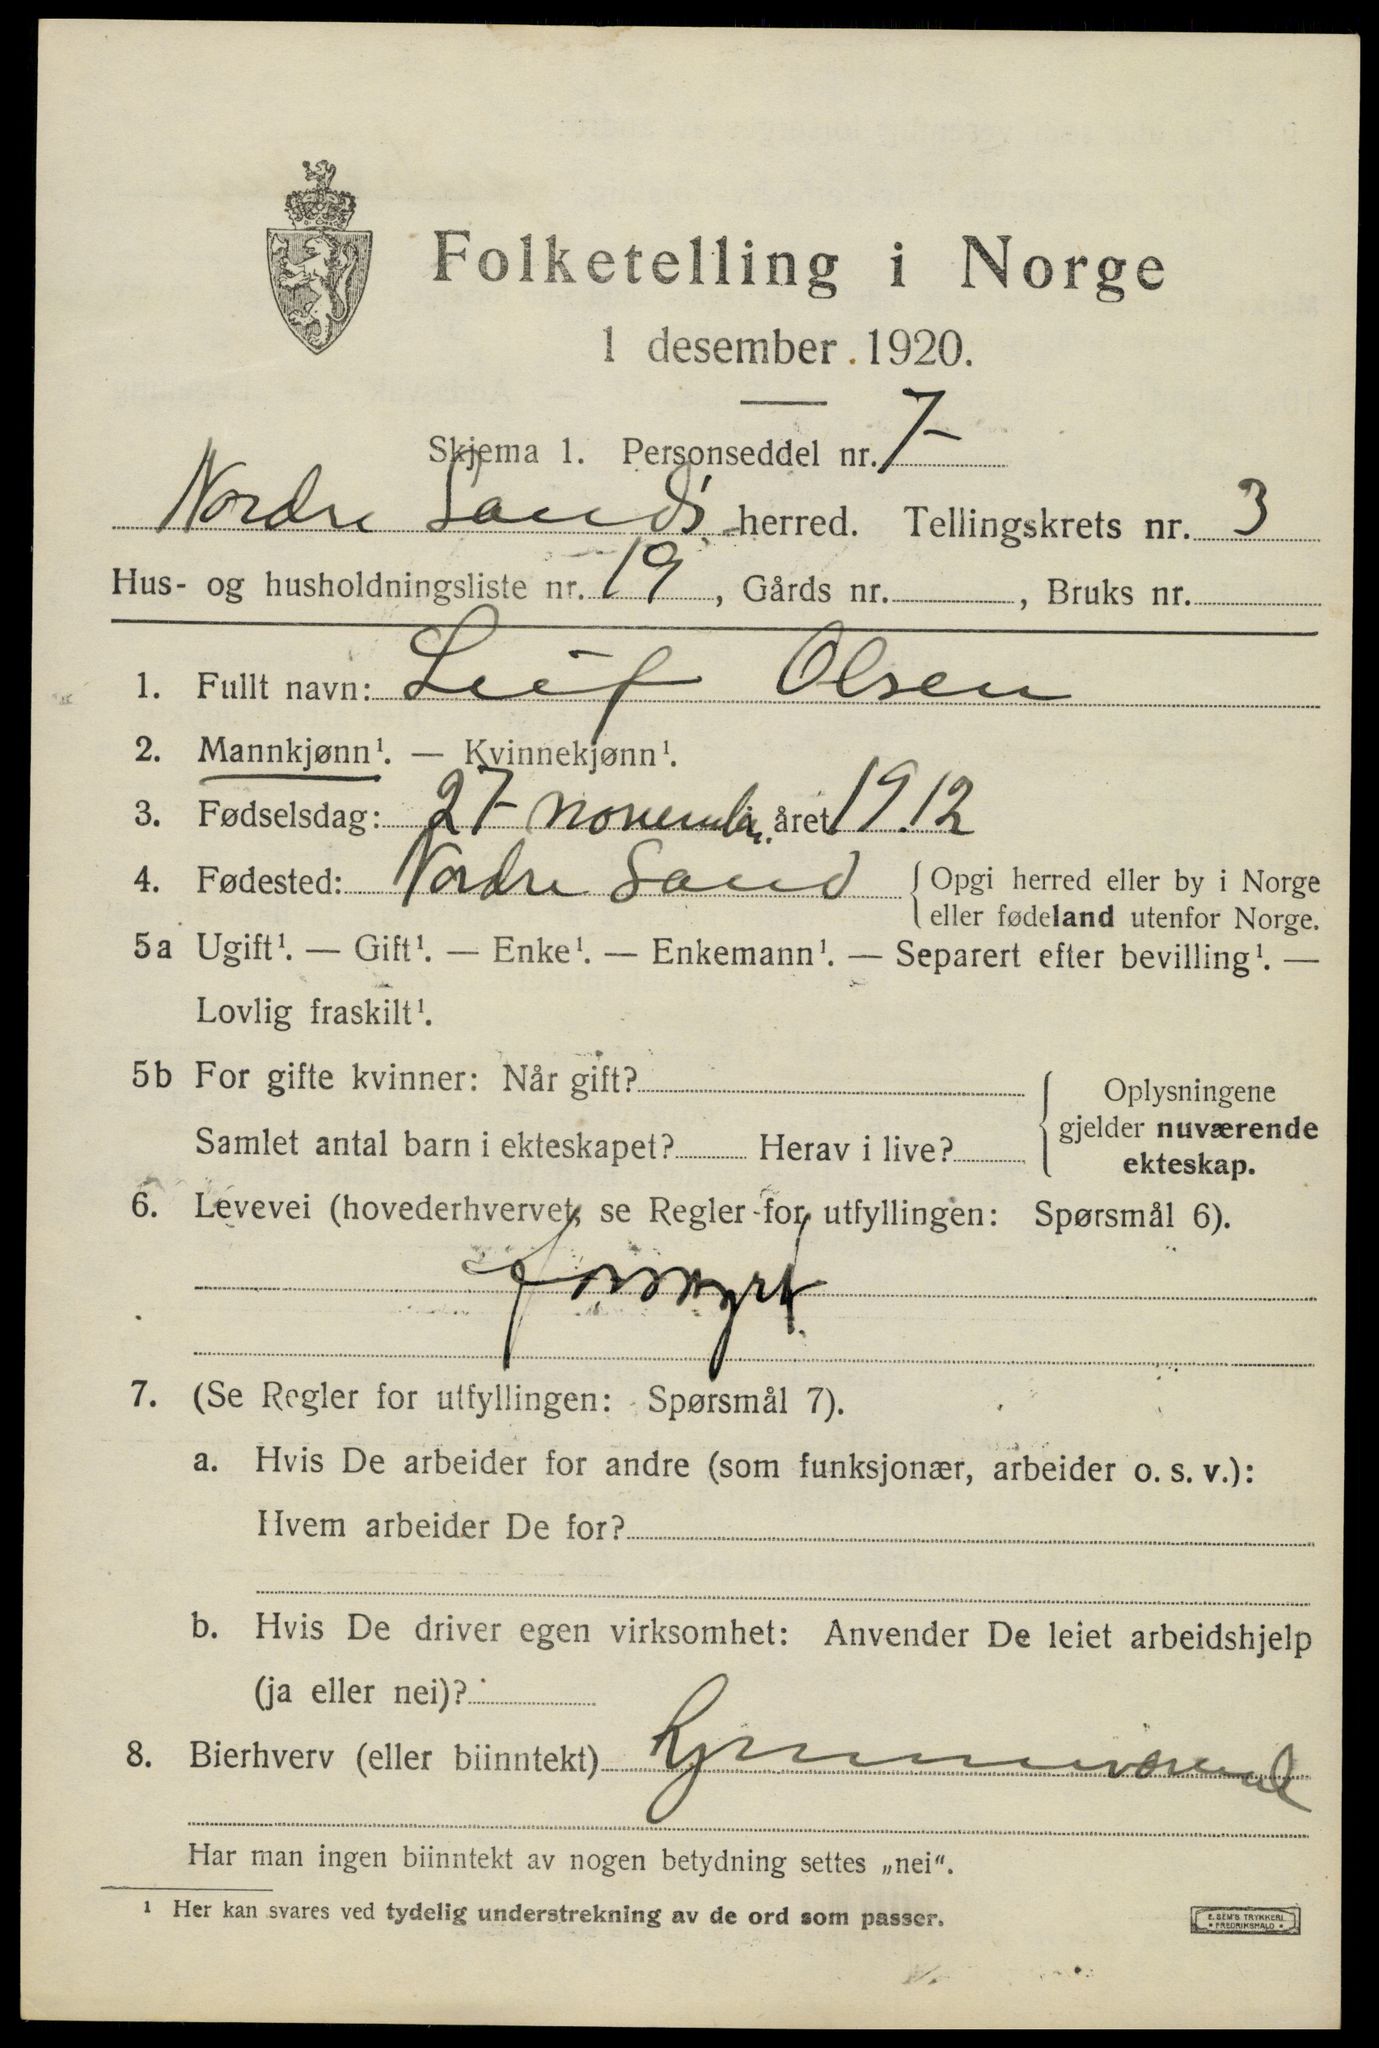 Folketelling i Norge
1 desember 1920.
Skjema 1. Personseddel nr. 7
Nordre Land's herred. Tellingskrets nr. 3
Hus- og husholdningsliste nr. 19, Gårds nr. , Bruks nr.
1. Fullt navn: Leif Olsen
2. Mannkjønn¹. — Kvinnekjønn¹.
3. Fødselsdag: 27 novembr. året 1912
4. Fødested: Nordre Land { Opgi herred eller by i Norge
eller fødeland utenfor Norge.
5a Ugift¹. — Gift¹. — Enke¹. — Enkemann¹. — Separert efter bevilling¹. —
Lovlig fraskilt¹.
5b For gifte kvinner: Når gift?
Samlet antal barn i ekteskapet? Herav i live?
{ Oplysningene
gjelder nuværende
ekteskap.
6. Levevei (hovederhvervet, se Regler for utfyllingen: Spørsmål 6).
forsørget
7. (Se Regler for utfyllingen: Spørsmål 7).
a. Hvis De arbeider for andre (som funksjonær, arbeider o. s. v.):
Hvem arbeider De for?
b. Hvis De driver egen virksomhet: Anvender De leiet arbeidshjelp
(ja eller nei)?
8. Bierhverv (eller biinntekt) hjemmeværende
Har man ingen biinntekt av nogen betydning settes „nei“.
¹ Her kan svares ved tydelig understrekning av de ord som passer.
E. SEM'S TRYKKERI
• FREDRIKSHALD •